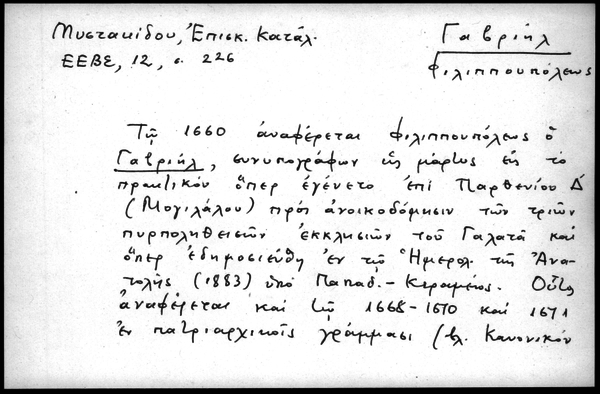 Μυστακίδου, Ἐπισκ. Κατάλ.
Γαβριήλ
ΕΕΒΣ, 12, σ. 226
Φιλιππουπόλεως
Τῷ 1660 ἀναφέρεται Φιλιππουπόλεως ὁ
Γαβριήλ, συνυπογράφων ὡς μάρτυς εἰς τὸ
πρακτικόν ὅπερ ἐγένετο ἐπί Παρθενίου Δ΄
(Μογιλάλου) πρός ἀνοικοδόμησιν τῶν τριῶν
πυρποληθεισῶν ἐκκλησιῶν τοῦ Γαλατᾶ καί
ὅπερ ἐδημοσιεύθη ἐν τῷ Ἡμερολ. τῆς Ἀνα-
τολῆς (1883) ὑπό Παπαδ.-Κεραμέως. Οὗτος
ἀναφέρεται καί τῷ 1668-1670 καί 1671
ἐν πατριαρχικοῖς γράμμασι (βλ. Κανονικόν